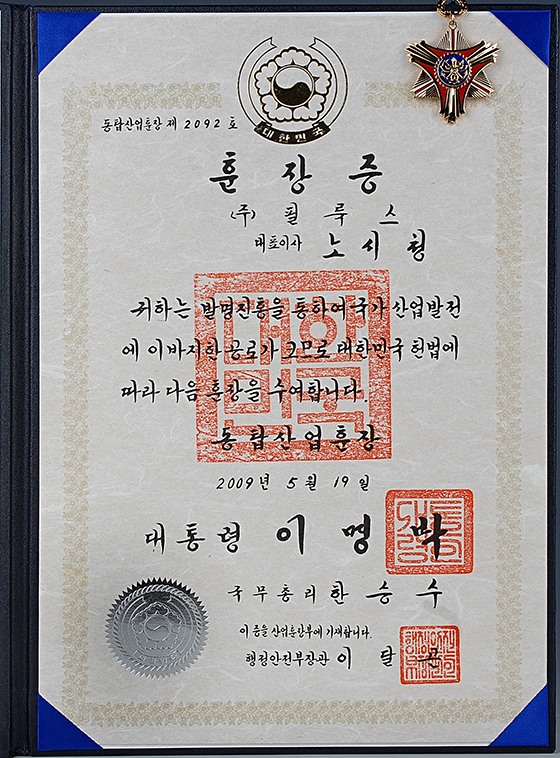 대한민국
동탑산업훈장 제 2092 호
훈장증
(주) 필룩스
대표이사 노시청
귀하는 발명진흥을 통하여 국가 산업발전
에 이바지한 공로가 크므로 대한민국 헌법에
따라 다음 훈장을 수여합니다.
동탑산업훈장
2009년 5월 19일
대통령 이명박
국무총리 한승수
이 증을 산업훈장부에 기재합니다.
행정안전부장관 이달곤